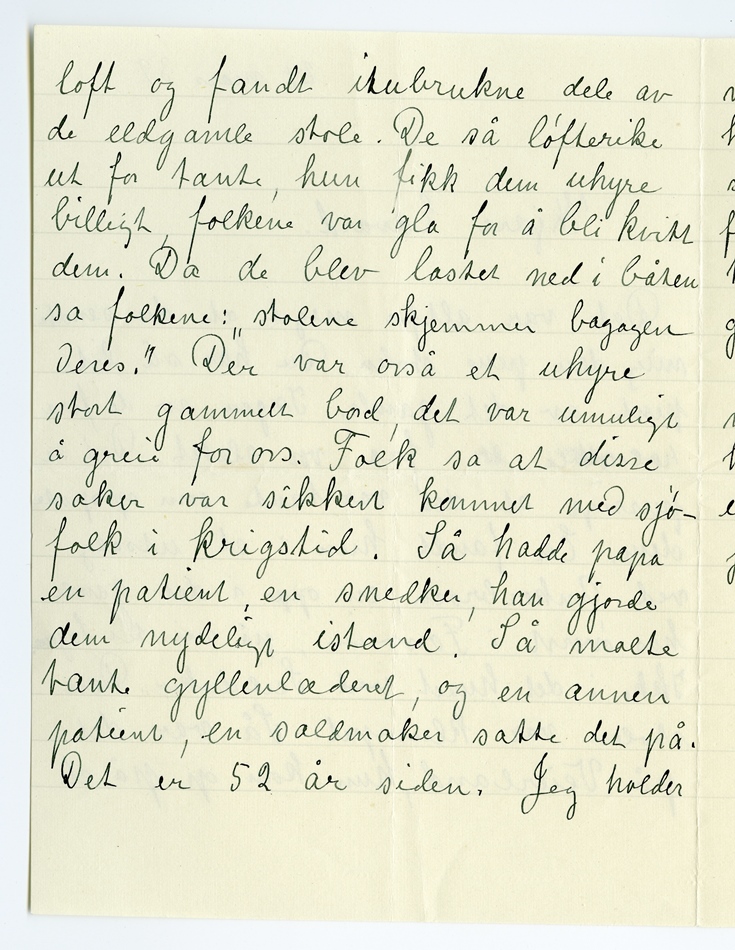 loft og fandt itubrukne dele av
de eldgamle stole. De så løfterike
ut for tante, hun fikk dem uhyre
billigt, folkene var gla for å bli kvitt
dem. Da de blev lastet ned i båten
sa folkene: „stolene skjemmer bagagen
Deres." Der var også et uhyre
stort gammelt bord, det var umuligt
å greie for oss. Folk sa at disse
saker var sikkert kommet med sjø-
folk i krigstid. Så hadde papa
en patient, en snedker, han gjorde
dem nydeligt istand. Så malte
tante gyllenlæderet, og en annen
patient, en saldmaker satte det på.
Det er 52 år siden. Jeg holder